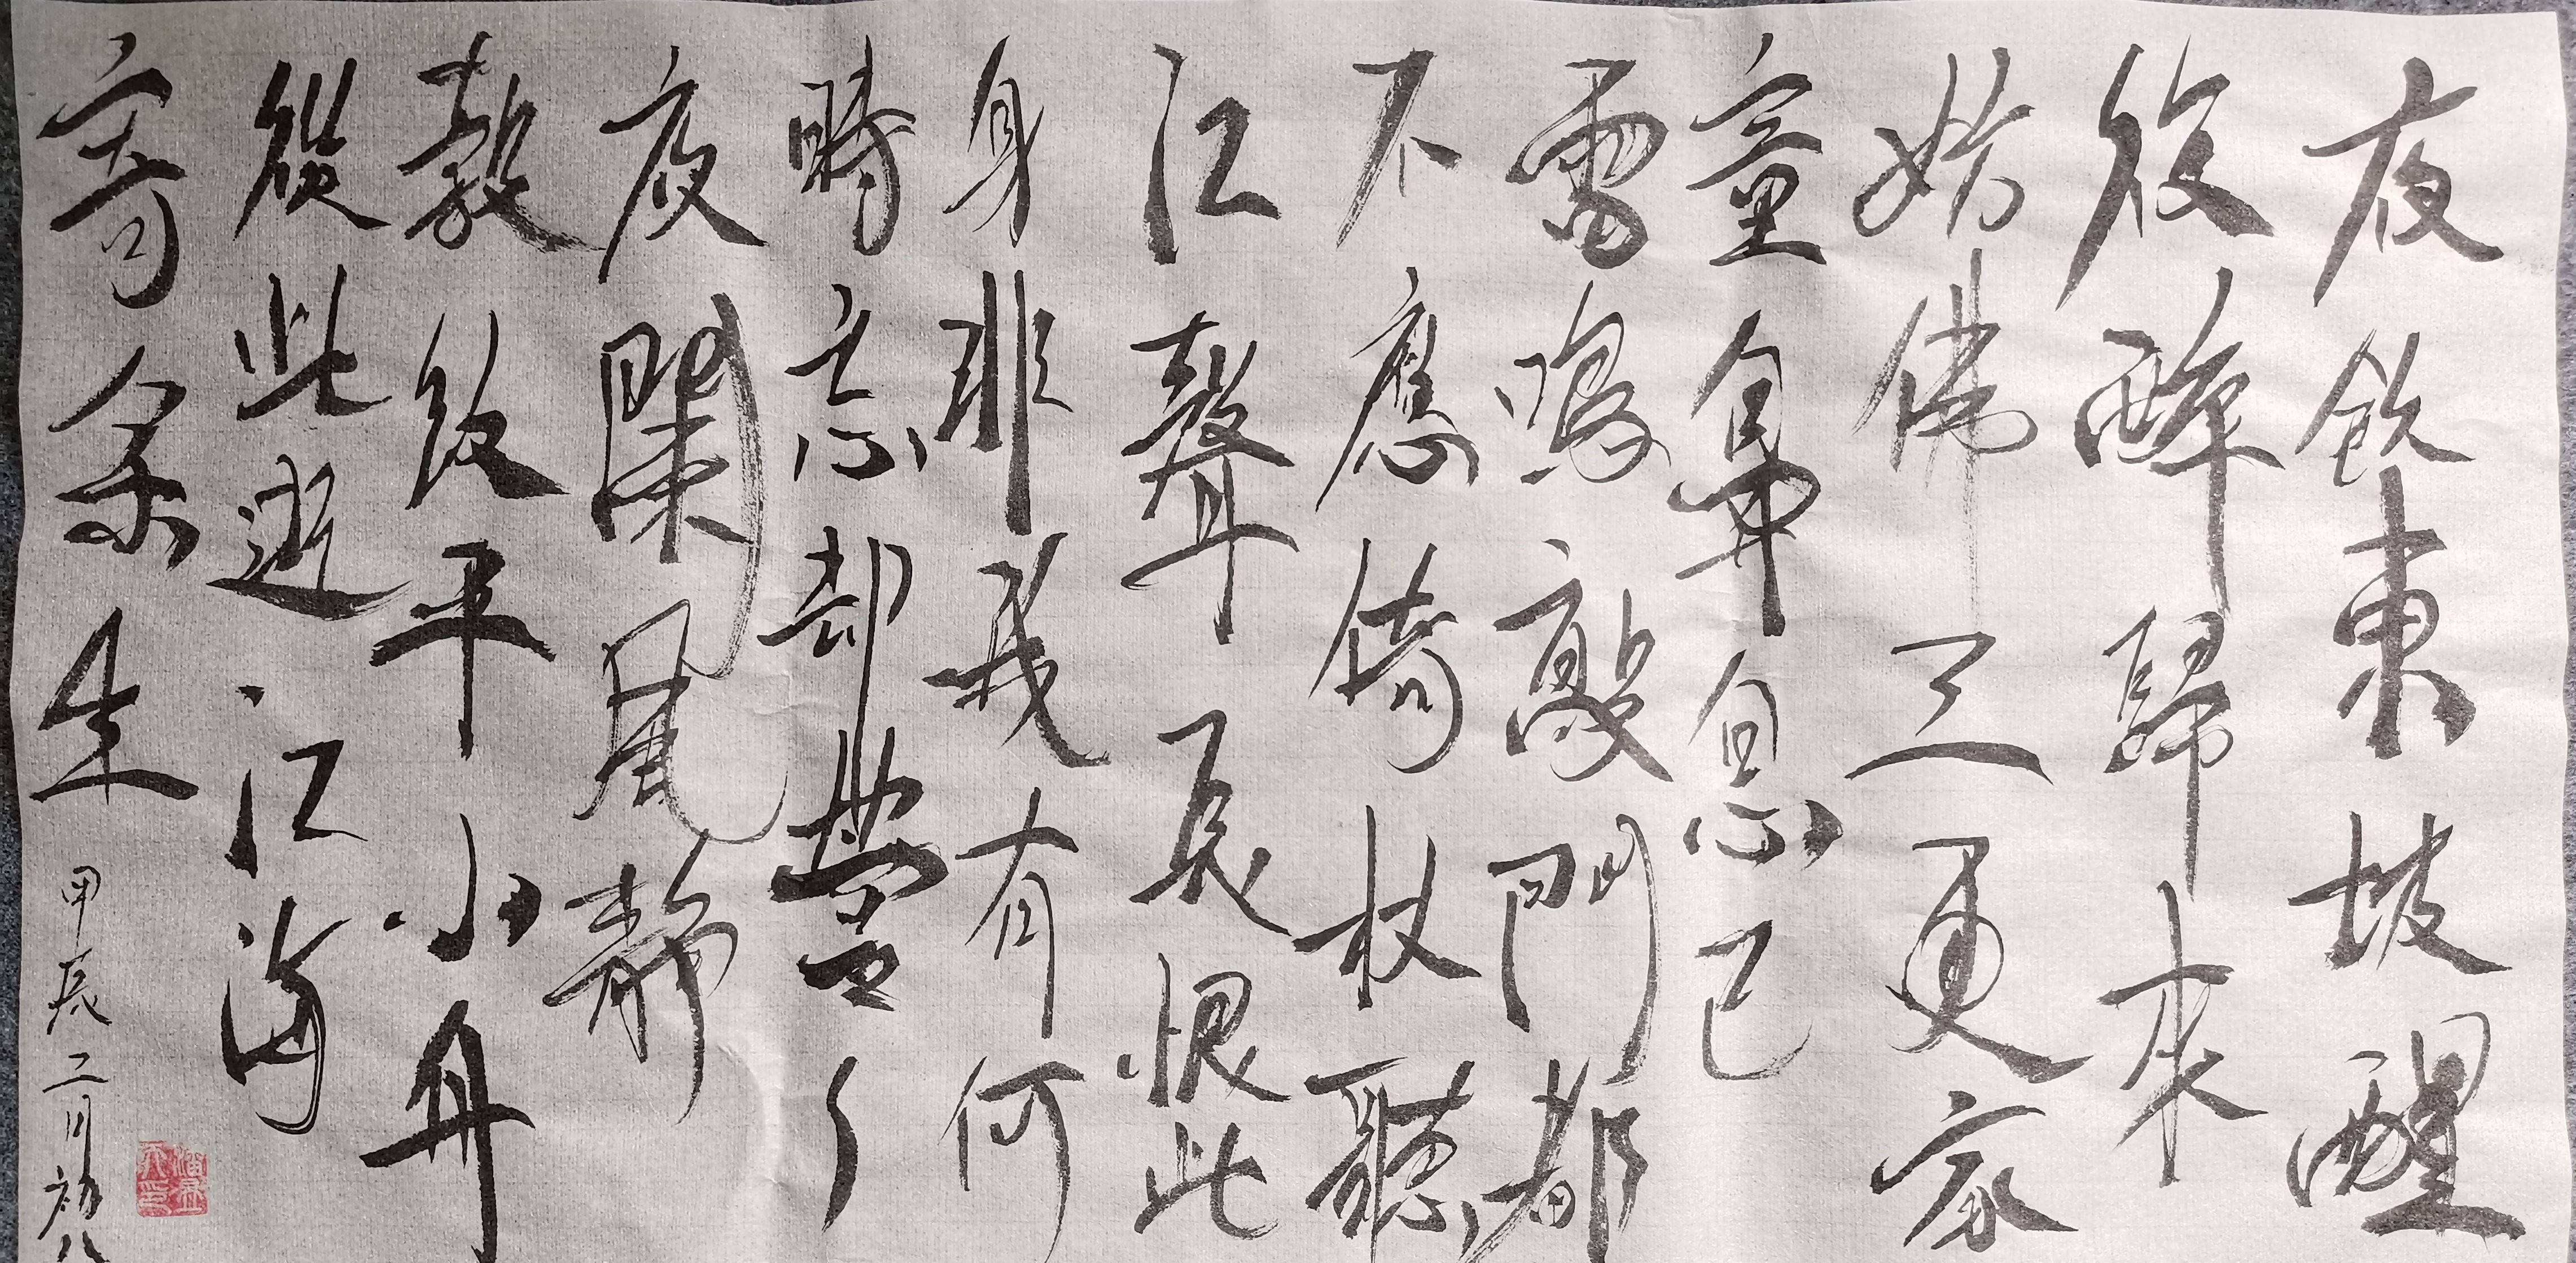 夜飲東坡醒
復醉歸來
彷彿三更家
童鼻息已
雷鳴敲門都
不應倚杖聽
江聲長恨此
身非我有何
時忘却營々
夜闌風靜
縠紋平小舟
從此逝江海
寄余生
甲辰二月初八